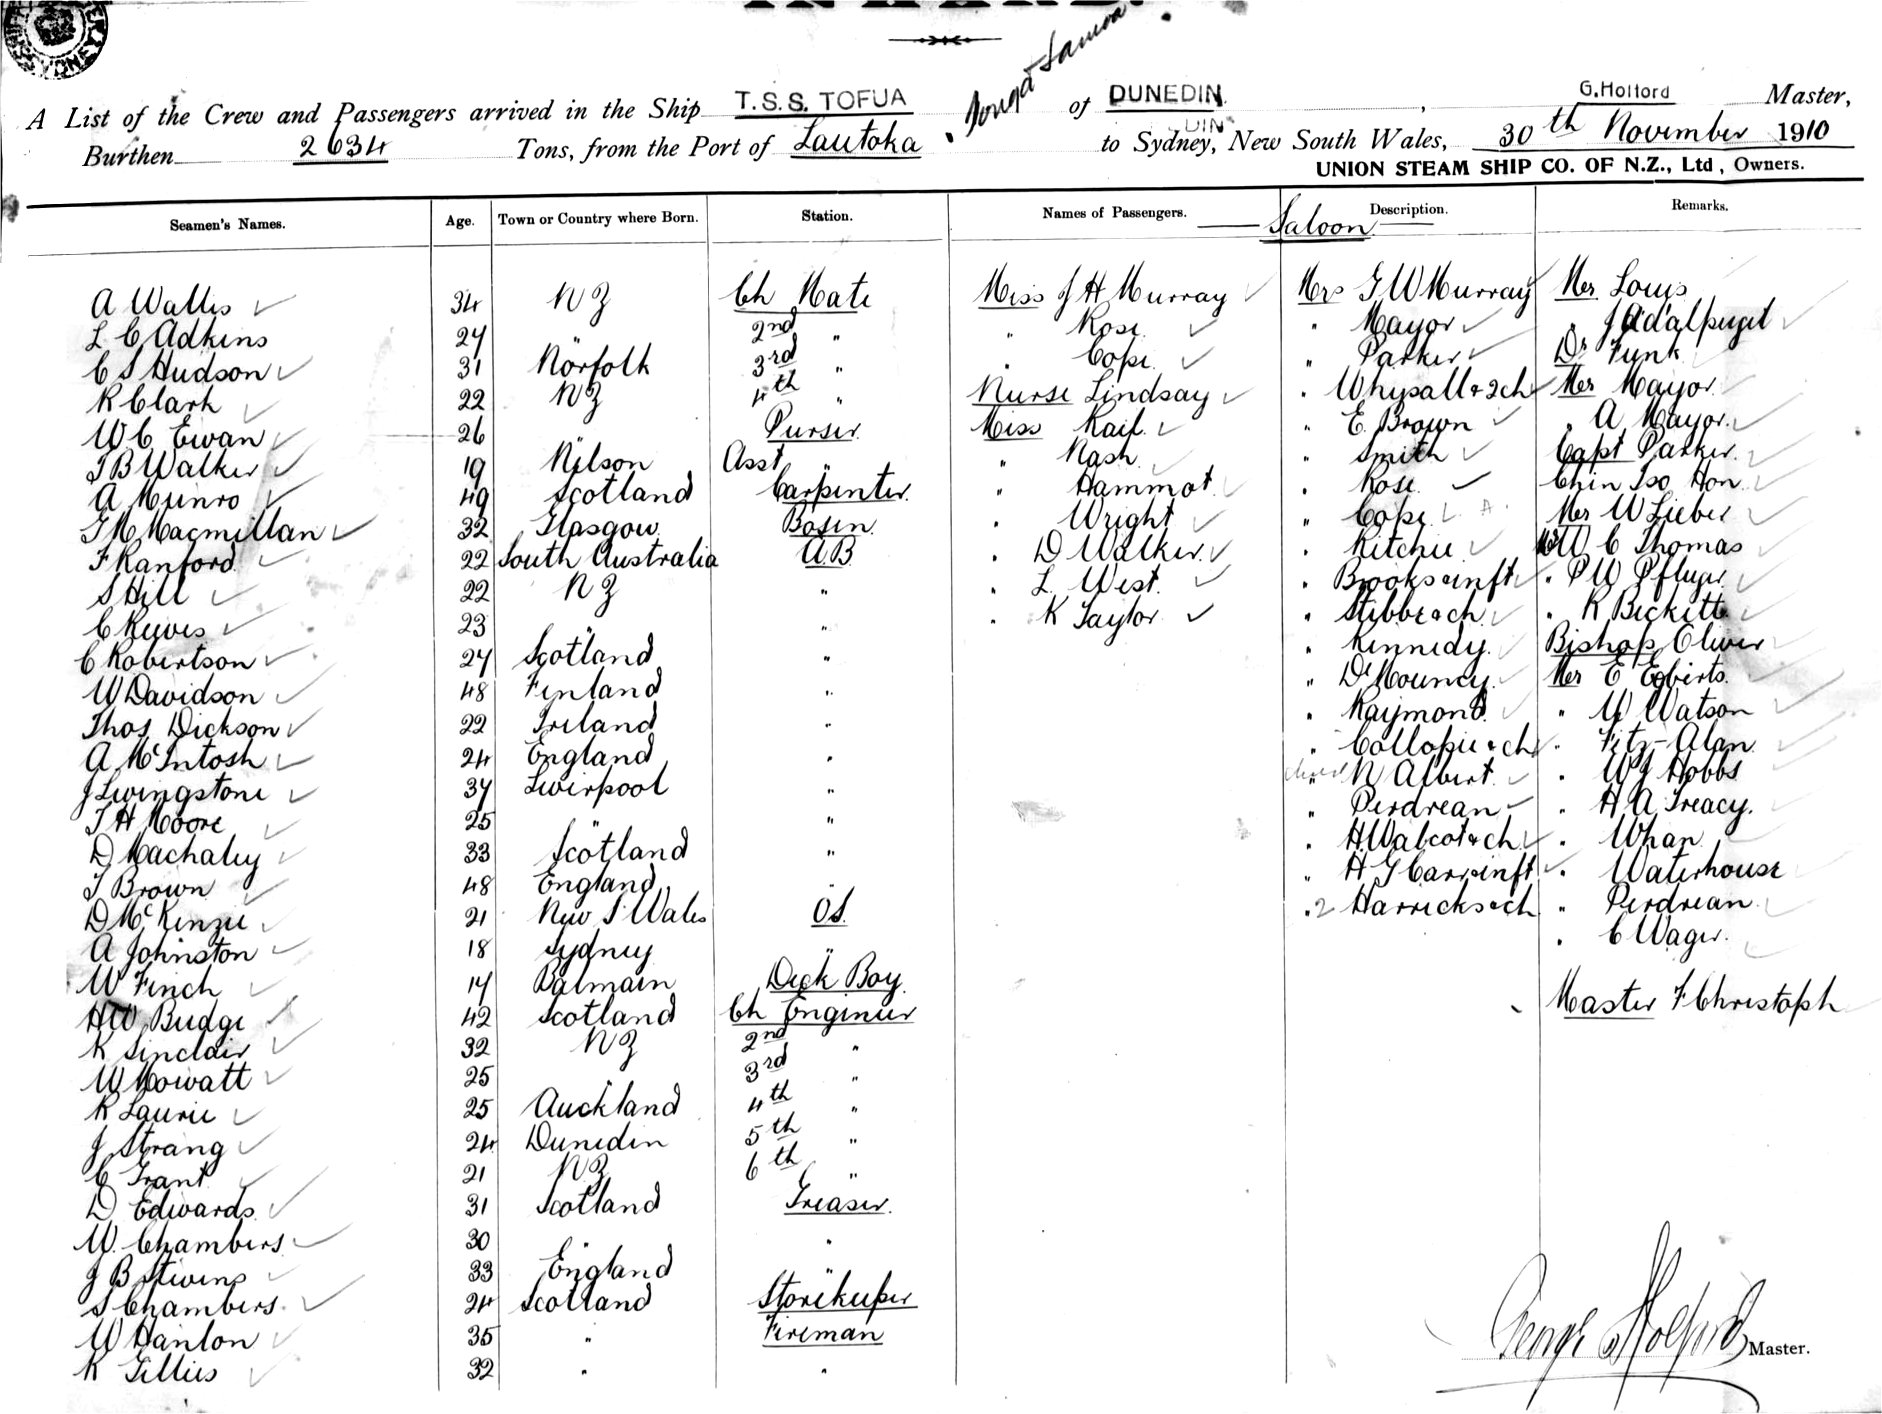 INWARD.
Tonga & Samoa
A List of the Crew and Passengers arrived in the Ship T.S.S. TOFUA of DUNEDIN, G. Holford Master,
Burthen 2634 Tons, from the Port of Lautoka to Sydney, New South Wales, 30th November 1910
UNION STEAM SHIP CO. OF N.Z., Ltd, Owners.
Seamen's Names. Age. Town or Country where Born. Station. Names of Passengers. Description. Remarks.
Saloon
A Wallis 34 N Z Ch Mate Miss J H Murray Mrs G W Murray Mr Louis
L C Adkins 27 " 2nd " " Rose " Mayor "
C S Hudson 31 Norfolk 3rd " " Cope " Parker Dr Funk
R Clark 22 N Z 4th " Nurse Lindsay " Whysall & 2 ch Mr Mayor
W C Ewan 26 " Purser Miss Raif " E Brown " A Mayor
T B Walker 19 Nelson Asst " " Nash " Smith Capt Parker
A Munro 49 Scotland Carpenter " Hammot " Rose Chin Tso Hon
G M Macmillan 32 Glasgow Bosun " Wright " Cope Mr W Lieber
F Ranford 22 South Australia A.B. " D Walker " Ritchie W C Thomas
S Hill 22 N Z " " L West " Brooks & inft " P W Pfluger
C Reeves 23 " " " K Taylor " Stibbe & ch " R Bickett
C Robertson 27 Scotland " " Kennedy Bishop Oliver
W Davidson 48 Finland " " D'Mouncy Mr E Egberts
Thos Dickson 22 Ireland " " Raymond " W Watson
A McIntosh 24 England " " Collopie & ch " Fitz-Alan
J Livingstone 37 Liverpool " " N Albert " W J Hobbs
T H Moore 25 " " " Perdrean " H A Treacy
D Machaley 33 Scotland " " H Walcot & ch " Whan
T Brown 48 England " " H G Carr & inft " Waterhouse
D McKenzie 21 New S Wales O.S. " 2 Harricks & ch " Perdrean
A Johnston 18 Sydney " " C Wager
W Finch 17 Balmain Deck Boy
H W Budge 42 Scotland Ch Engineer Master F Christoph
R Sinclair 32 N Z 2nd "
W Mowatt 25 " 3rd "
R Laurie 25 Auckland 4th "
J Strang 24 Dunedin 5th "
C Grant 21 N Z 6th "
D Edwards 31 Scotland Greaser
W. Chambers 30 " "
J B Stivens 33 England "
S Chambers 24 Scotland Storekeeper
W Hanlon 35 " Fireman
R Gillies 32 " "
George Holford Master.